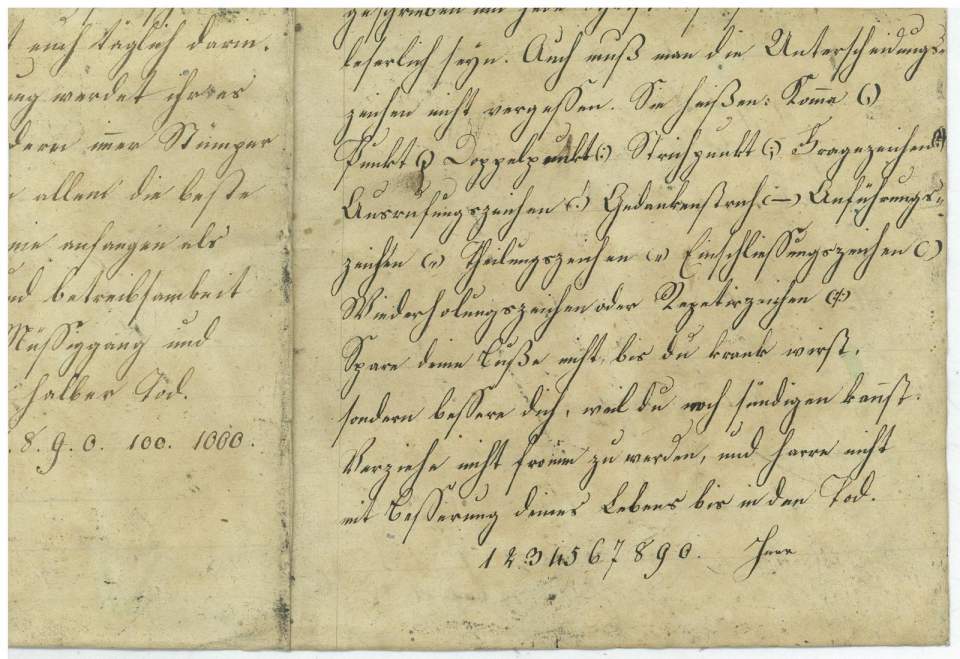 t euch täglich darin.
ung werdet ihr es
dern immer Stümper
n allem die beste
nie anfangen als
nd betreibsamkeit
Müssiggang und
halber Tod.
8. 9. 0. 100. 1000.
geschrieben und jede
leserlich seyn. Auch muß man die Unterscheidungs-
zeichen nicht vergessen. Sie heißen: Komma (,)
Punkt (.) Doppelpunkt (:) Strichpunkt (;) Fragezeichen (?)
Ausrufungszeichen (!) Gedankenstrich (—) Anführungs-
zeichen („) Theilungszeichen („) Einschliessungszeichen ( )
Wiederholungszeichen oder Repetirzeichen (:/:)
Spare deine Buße nicht, bis du krank wirst,
sondern bessere dich, weil du noch sündigen kannst.
Verziehe nicht fromm zu werden, und harre nicht
mit Besserung deines Lebens bis in den Tod.
1 2 3 4 5 6 7 8 9 0.